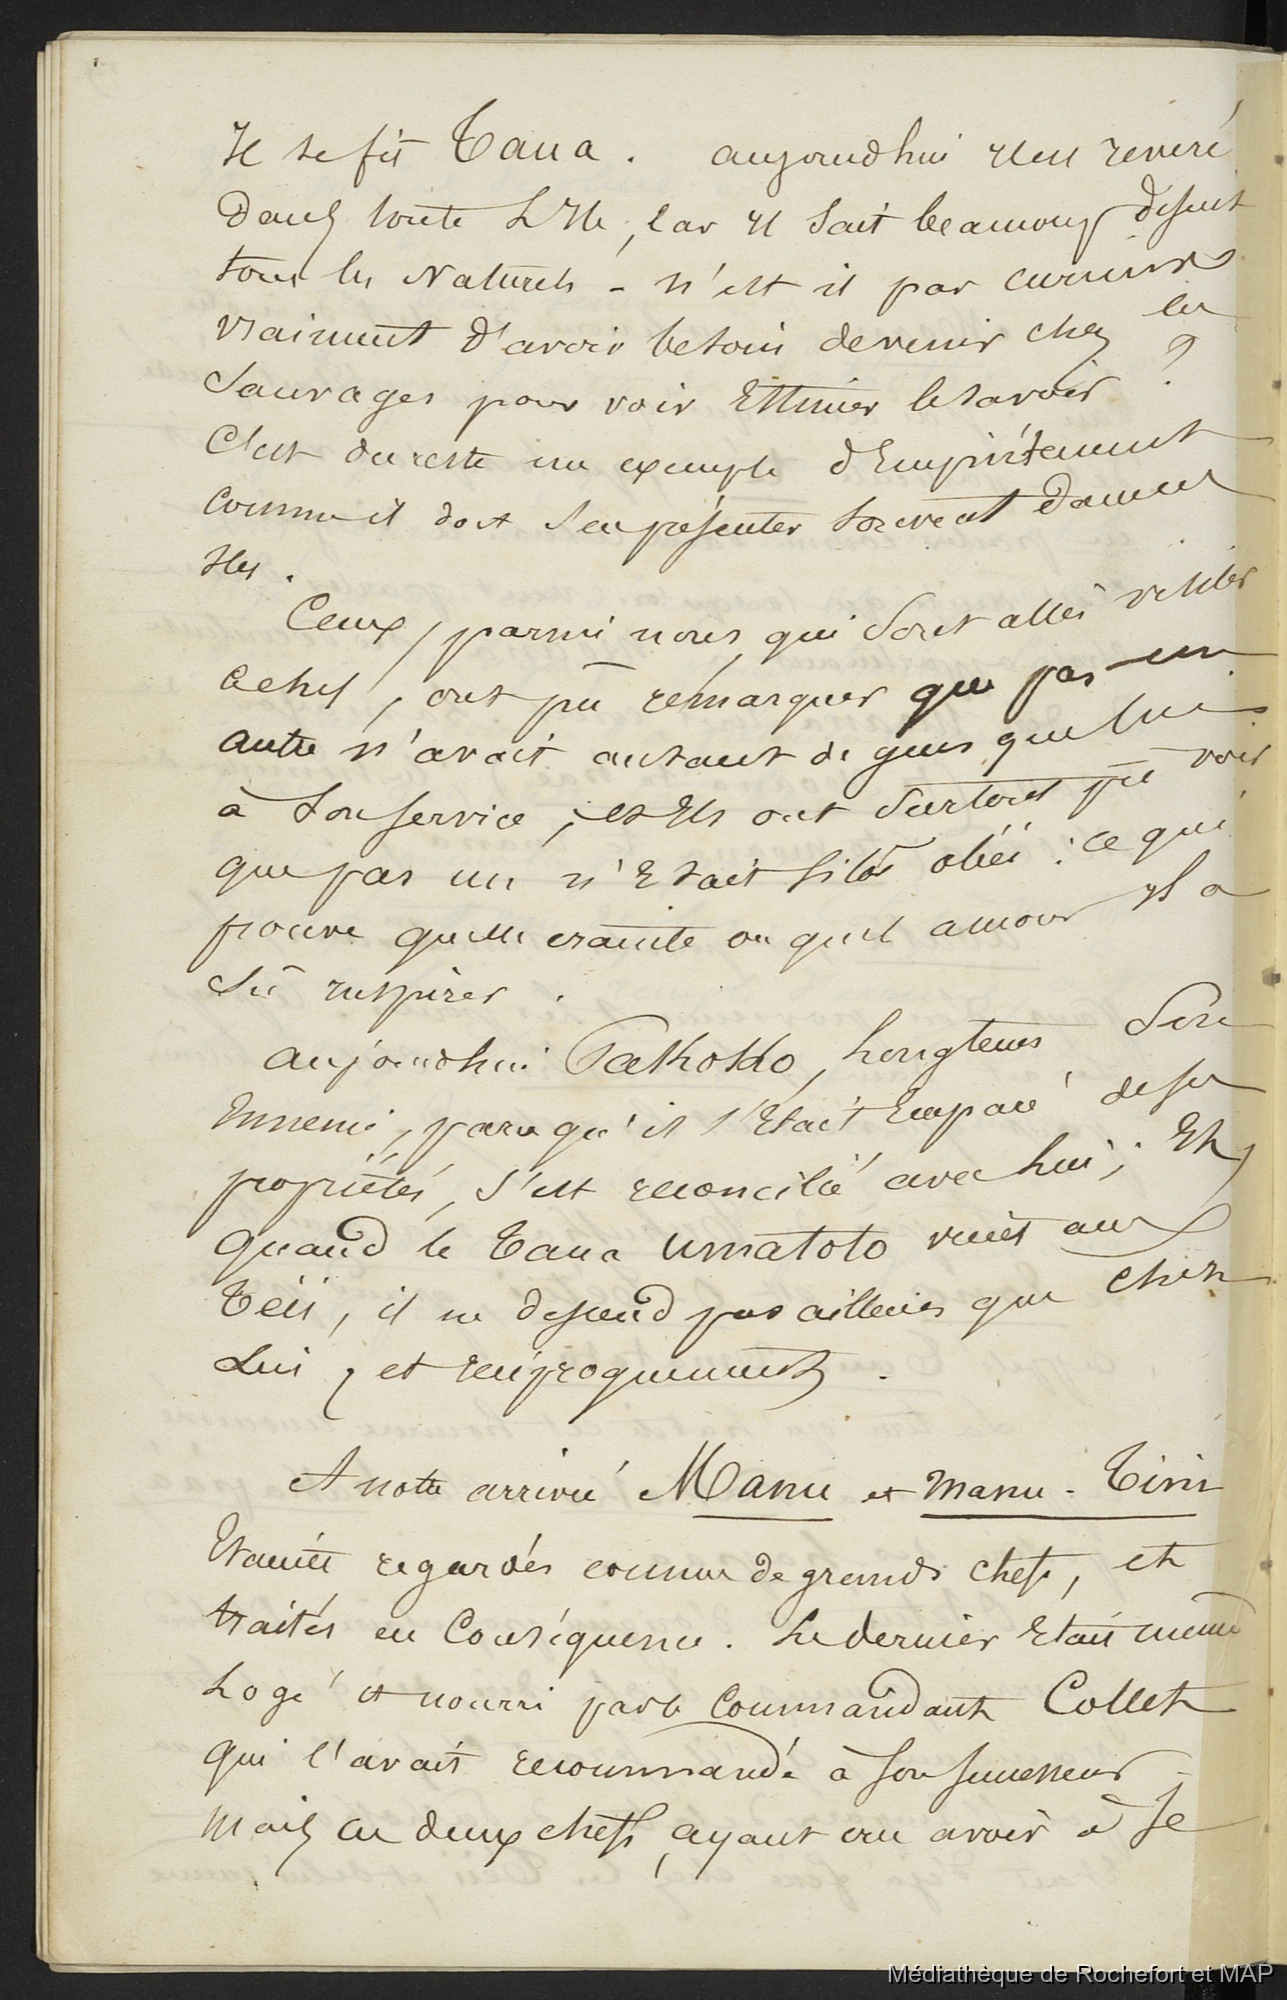 Il se fit Taua. aujourdhui il est réveré
Dans toute L'Ile, Car il Sait beaucoup disent
tous les Naturels - n'est il pas curieux
vraiment d'avoir besoin de venir chez les
Sauvages pour voir Estimer le savoir ?
C'est du reste un exemple d'Empiétement
comme il doit s'en présenter souvent dans ces
Iles.
Ceux, parmi nous, qui Sont allés visiter
ce chef, ont pû remarquer que pas un
autre n'avait autant de gens que lui
à Son service; et Ils ont Surtout pû voir
que pas un n'Etait sitôt obéi : ce qui
prouve quelle crainte ou quel amour Il a
Sû inspirer.
aujourdhui Pakokko, Longtems Son
Ennemi, parce qu'il s'Etait Emparé de ses
propriétés, s'est reconcilié avec Lui; Et
quand le Taua Umatoto vient aux
Teii, il ne descend pas ailleurs que chez
Lui, et reciproquement.
A notre arrivée Manu et Manu - Tini
Etaient regardés comme de grands chefs, et
traités en Conséquence. Le dernier Etait même
Logé et nourri par le Commandant Collet
qui l'avait recommandé à son successeur -
Mais ces deux chefs, ayant cru avoir à se
Médiathèque de Rochefort et MAP